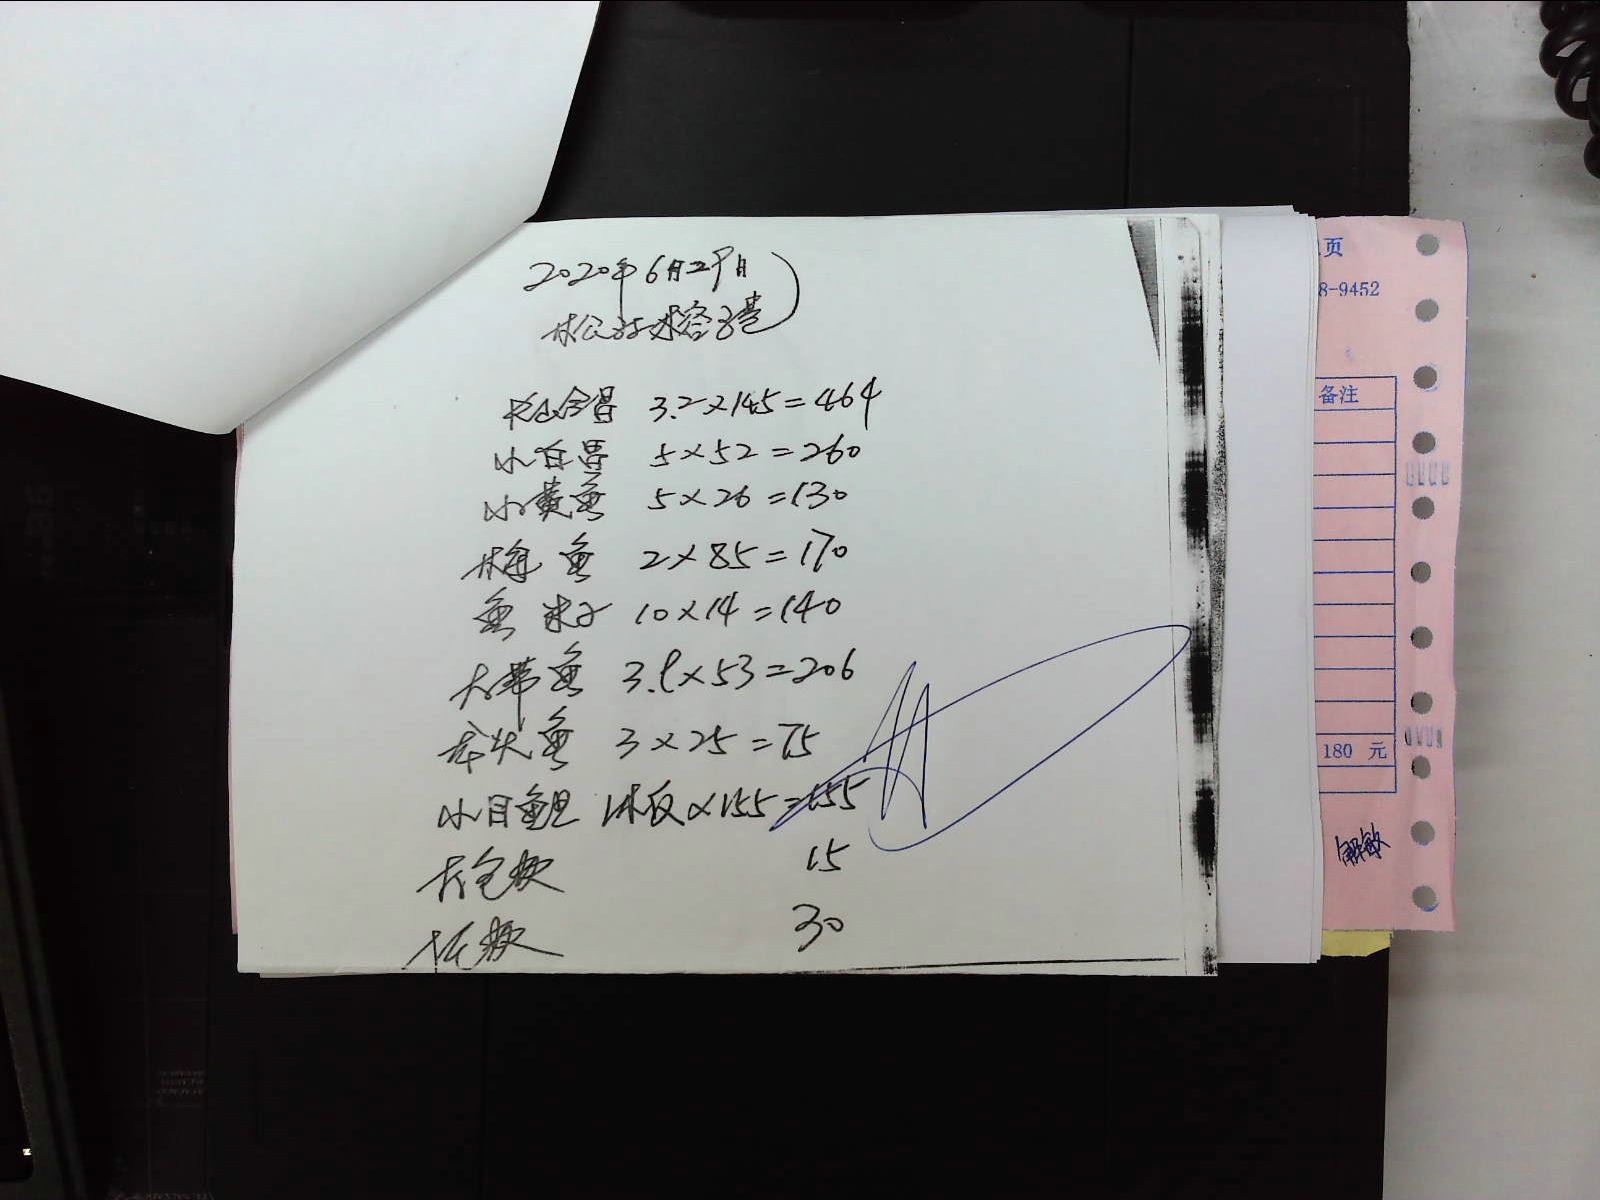 2020年6月29日
大仓昌 3.2×145=464
小白昌 5×52=260
小黄鱼 5×26=130
梅鱼 2×85=170
鱼 10×14=140
大带鱼 3.9×53=206
鱼 3×25=75
小目鱼旦 1板×155=155
15
30
页
8-9452
备注
180 元